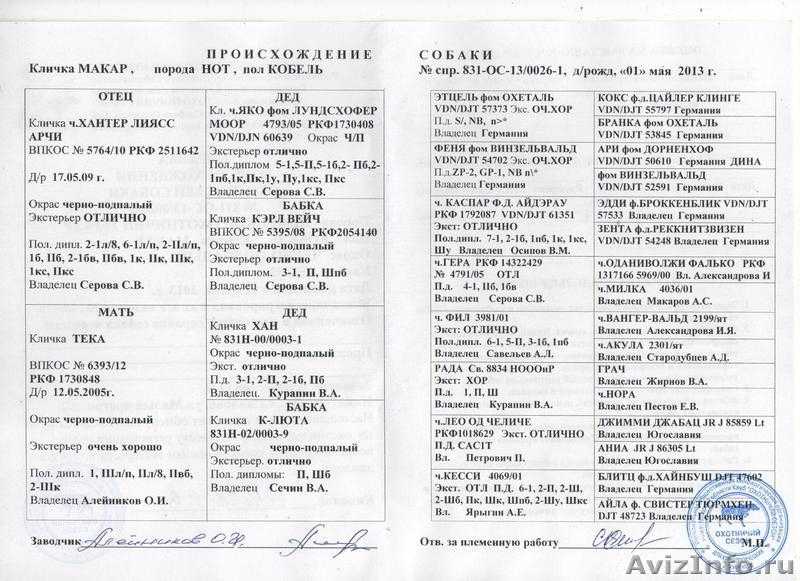 ПРОИСХОЖДЕНИЕ
Кличка МАКАР , порода НОТ , пол КОБЕЛЬ
ОТЕЦ
Кличка ч.ХАНТЕР ЛИЯСС
АРЧИ
ВПКОС № 5764/10 РКФ 2511642
Д/р 17.05.09 г.
Окрас черно-подпалый
Экстерьер ОТЛИЧНО
Пол. дипл. 2-1л/8, 6-1л/п, 2-IIл/п,
1б, IIб, 2-1бв, IIбв, 1к, IIк, IIIк,
1кс, Пкс
Владелец Серова С.В.
ДЕД
Кл. ч.ЯКО фом ЛУНДСХОФЕР
МООР 4793/05 РКФ1730408
VDN/DJN 60639 Окрас Ч/П
Экстерьер отлично
Пол.диплом 5-1,5-П,5-1б,2- Пб,2-
1пб,1к,Пк,1у, Пу,1кс, Пкс
Владелец Серова С.В.
БАБКА
Кличка КЭРЛ ВЕЙЧ
№ ВПКОС 5395/08 РКФ2054140
Окрас черно-подпалый
Экстерьер отлично
Пол.диплом. 3-1, П, Шпб
Владелец Серова С.В.
МАТЬ
Кличка ТЕКА
ВПКОС № 6393/12
РКФ 1730848
Д/р 12.05.2005г.
Окрас черно-подпалый
Экстерьер очень хорошо
Пол. дипл. 1, IIIл/п, IIл/8, Пвб,
2-IIIк
Владелец Алейников О.И.
ДЕД
Кличка ХАН
№ 831Н-00/0003-1
Окрас черно-подпалый
Экст. отлично
П.д. 3-1, 2-П, 2-1б, Пб
Владелец. Курапин В.А.
БАБКА
Кличка К-ЛЮТА
831Н-02/0003-9
Окрас черно-подпалый
Экстерьер. отлично
Пол. дипломы: П, Шб
Владелец Сечин В.А.
Заводчик Алейников О.И.
СОБАКИ
№ спр. 831-ОС-13/0026-1, д/рожд, «01» мая 2013 г.
ЭТЦЕЛЬ фом ОХЕТАЛЬ
VDN/DJT 57373 Экс. ОЧ.ХОР
П.д. S/, NB, n>*
Владелец Германия
ФЕНЯ фом ВИНЗЕЛЬВАЛЬД
VDN/DJT 54702 Экс. ОЧ.ХОР
П.д.ZP-2, GP-1, NB n\*
Владелец Германия
ч. КАСПАР Ф.Д. АЙДЭРАУ
РКФ 1792087 VDN/DJT 61351
Экст: ОТЛИЧНО
Пол.дипл. 7-1, 2-1б, 1пб, 1к, 1кс,
Шу Владелец Осипов В.М.
ч.ГЕРА РКФ 14322429
№ 4791/05 ОТЛ
П.д. 4-1, IIб, 1бв
Владелец Серова С.В.
ч. ФИЛ 3981/01
Экст: ОТЛИЧНО
Пол.дипл. 6-1, 5-П, 3-1б, 1пб
Владелец Савельев А.Л.
РАДА Св. 8834 НОООиР
Экст: ХОР
П.д. 1, П, Ш
Владелец Курапин В.А.
ч.ЛЕО ОД ЧЕЛИЧЕ
РКФ1018629 Экст. ОТЛИЧНО
П.Д. САС1Т
Вл. Петрович П.
ч.КЕССИ 4069/01
Экст. ОТЛ П.Д. 6-1, 2-П, 2-Ш,
2-Шб, Пк, Шк, Шпб, 2-Шу, Шкс
Вл. Ярыгин А.Е.
КОКС ф.д.ЦАЙЛЕР КЛИНГЕ
VDN/DJT 55797 Германия
БРАНКА фом ОХЕТАЛЬ
VDN/DJT 53845 Германия
АРИ фом ДОРНЕНХОФ
VDN/DJT 50610 Германия ДИНА
фом ВИНЗЕЛЬВАЛЬД
VDN/DJT 52591 Германия
ЭДДИ ф.БРОККЕНБЛИК VDN/DJT
57533 Владелец Германия
ЗЕНТА ф.РЕККНИТЗВИЗЕН
VDN/DJT 54248 Владелец Германия
ч.ОДАНИВОЛЖИ ФАЛЬКО РКФ
1317166 5969/00 Вл. Александрова И
ч.МИЛКА 4036/01
Владелец Макаров А.С.
ч.ВАНГЕР-ВАЛЬД 2199/ят
Владелец Александрова И.Я.
ч.АКУЛА 2301/ят
Владелец Стародубцев А.Д.
ГРАЧ
Владелец Жирнов В.А.
ч.НОРА
Владелец Пестов Е.В.
ДЖИММИ ДЖАБАЦ JR J 85859 Lt
Владелец Югославия
АНИА JR J 86305 Lt
Владелец Югославия
БЛИТЦ ф.д.ХАЙНБУШ DJT 47602
Владелец Германия
АЙЛА ф. СВИСТЕР ТЮРМХЕН
DJT 48723 Владелец Германия
Отв. за племенную работу М.П.
ОХОТНИЧИЙ
СЕЗОН
AvizInfo.ru